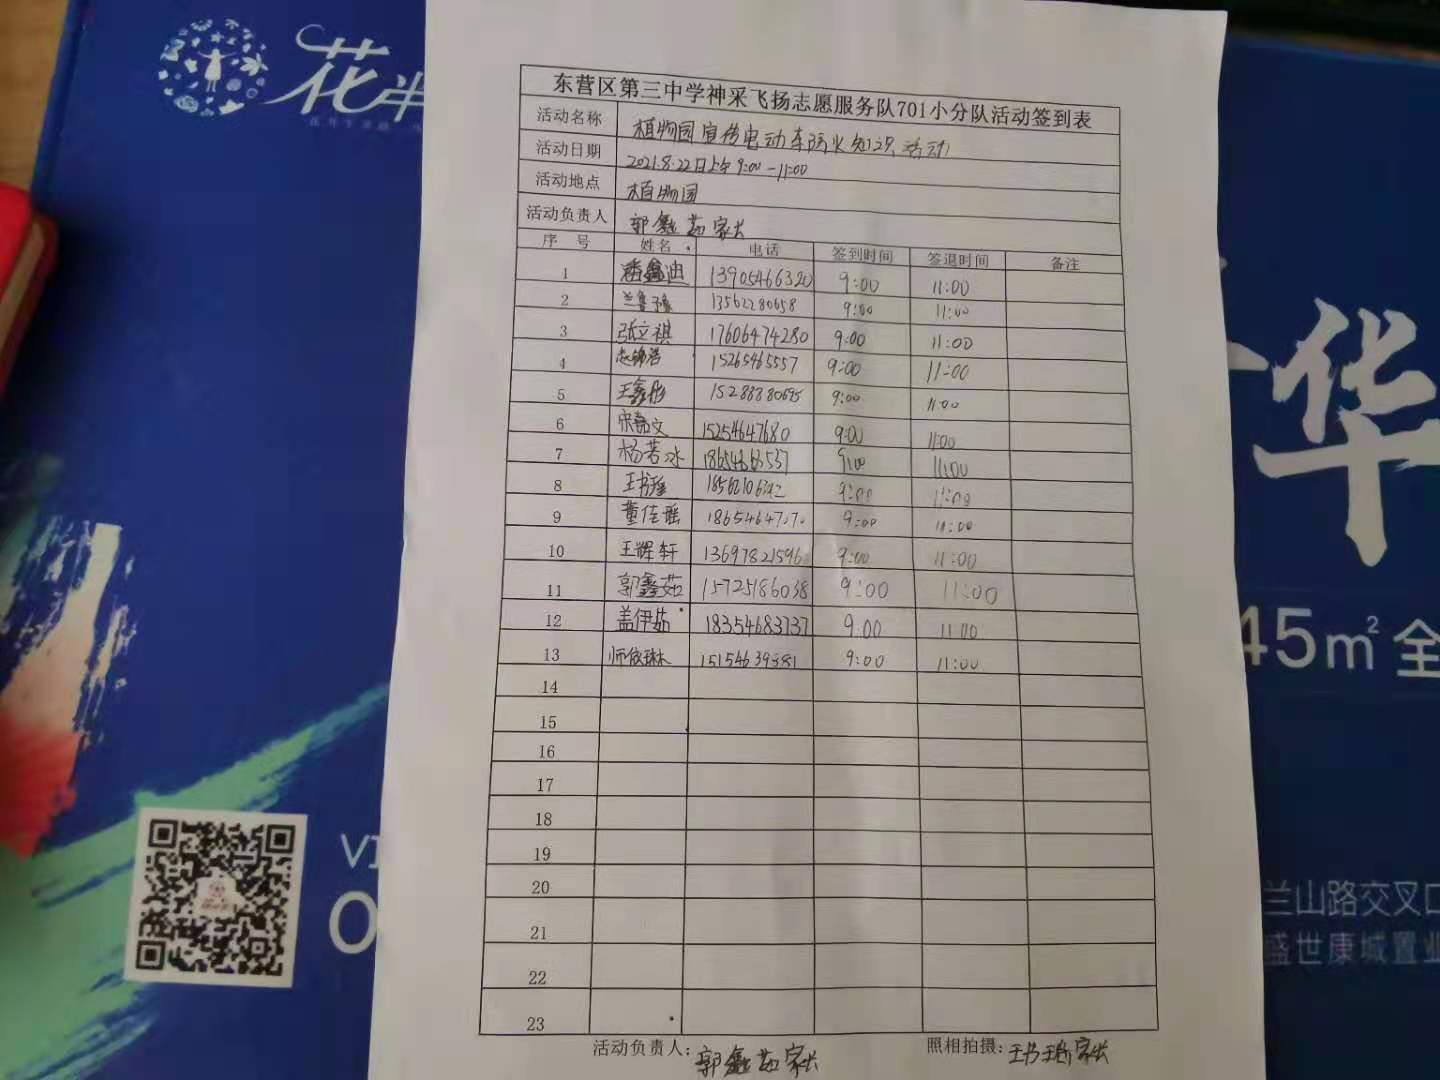 花半
东营区第三中学神采飞扬志愿服务队701小分队活动签到表
活动名称 植物园宣传电动车防火知识活动
活动日期 2021.8.22日上午9:00-11:00
活动地点 植物园
活动负责人 郭鑫茹家长
序号 姓名 电话 签到时间 签退时间 备注
1 潘鑫迪 13905466320 9:00 11:00
2 兰鲁 13562280658 9:00 11:00
3 张文祺 17606474280 9:00 11:00
4 15265465557 9:00 11:00
5 王鑫彤 15288880695 9:00 11:00
6 宋嘉文 15254647680 9:00 11:00
7 杨若冰 9:00 11:00
8 王书瑶 9:00 11:00
9 董佳瑶 9:00 11:00
10 王辉轩 13697821596 9:00 11:00
11 郭鑫茹 15725186038 9:00 11:00
12 盖伊茹 18354683737 9:00 11:00
13 师依琳 15154639381 9:00 11:00
14
15
16
17
18
19
20
21
22
23
活动负责人: 郭鑫茹家长 照相拍摄: 王书瑶家长
华
45m² 全
VI
0
兰山路交叉口
盛世康城置业